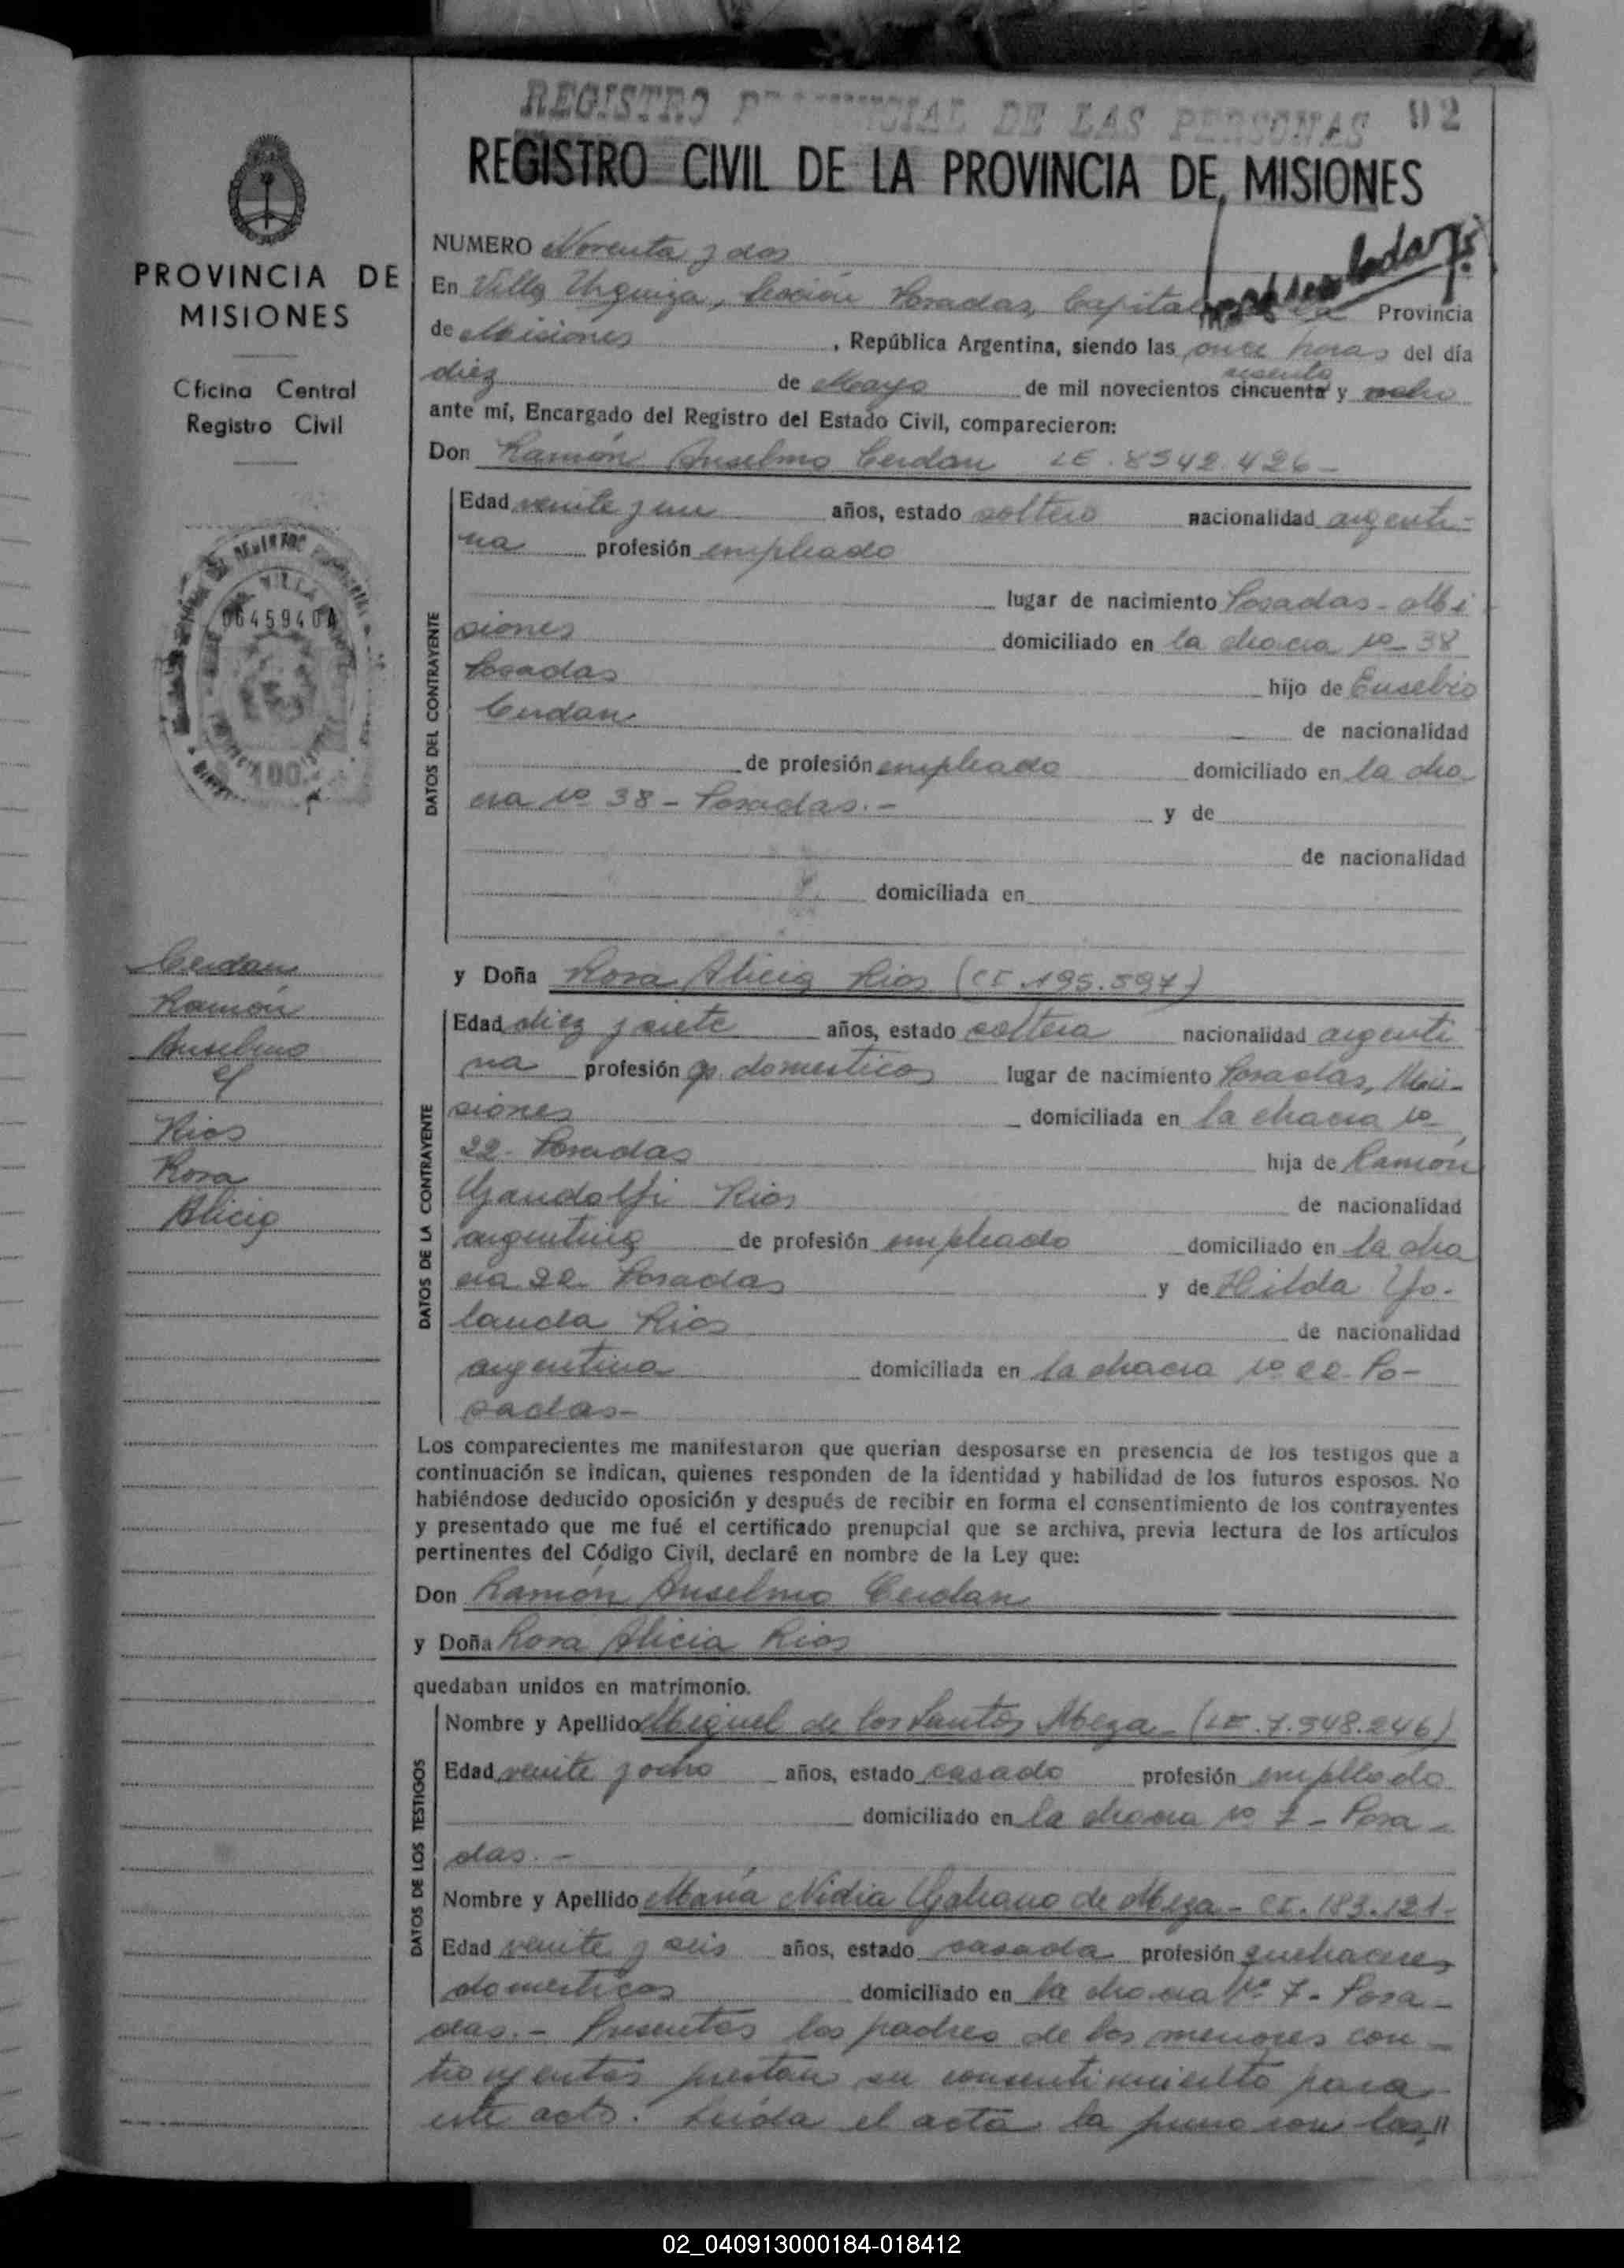 REGISTRO PROVINCIAL DE LAS PERSONAS 92
REGISTRO CIVIL DE LA PROVINCIA DE MISIONES
PROVINCIA DE
MISIONES
Oficina Central
Registro Civil
06459404
100
Cerdan
Ramón
Anselmo
y
Rios
Rosa
Alicia
NUMERO Noventa y dos
En Villa Urquiza, Sección Posadas, Capital Provincia
de Misiones, República Argentina, siendo las once horas del día
sesenta
diez de Mayo de mil novecientos cincuenta y ocho
ante mí, Encargado del Registro del Estado Civil, comparecieron:
Don Ramón Anselmo Cerdan LE. 8542.426-
DATOS DEL CONTRAYENTE
Edad veinte y un años, estado soltero nacionalidad argenti-
na profesión empleado
lugar de nacimiento Posadas - Mi
siones domiciliado en la chacra Nº 38
Posadas hijo de Eusebio
Cerdan de nacionalidad
de profesión empleado domiciliado en la cha
cra Nº 38 - Posadas.- y de
de nacionalidad
domiciliada en
y Doña Rosa Alicia Rios (CI. 195.597)
DATOS DE LA CONTRAYENTE
Edad diez y siete años, estado soltera nacionalidad argenti
na profesión q. domesticos lugar de nacimiento Posadas, Mi-
siones domiciliada en la chacra Nº
22- Posadas hija de Ramón
Gandolfi Rios de nacionalidad
argentina de profesión empleado domiciliado en la cha
cra 22- Posadas y de Hilda Yo-
landa Rios de nacionalidad
argentina domiciliada en la chacra Nº 22- Po-
sadas-
Los comparecientes me manifestaron que querían desposarse en presencia de los testigos que a
continuación se indican, quienes responden de la identidad y habilidad de los futuros esposos. No
habiéndose deducido oposición y después de recibir en forma el consentimiento de los contrayentes
y presentado que me fué el certificado prenupcial que se archiva, previa lectura de los artículos
pertinentes del Código Civil, declaré en nombre de la Ley que:
Don Ramón Anselmo Cerdan
y Doña Rosa Alicia Rios
quedaban unidos en matrimonio.
DATOS DE LOS TESTIGOS
Nombre y Apellido Miguel de los Santos Meza - (LE. 7.548.246)
Edad veinte y ocho años, estado casado profesión empleado
domiciliado en la chacra Nº 7 - Posa-
das.-
Nombre y Apellido María Nidia Galeano de Meza - CI. 183.121-
Edad veinte y seis años, estado casada profesión quehaceres
domesticos domiciliado en la chacra Nº 7- Posa-
das.- Presentes los padres de los menores con-
trayentes prestan su consentimiento para
este acto. Leida el acta la firma con los,"
02_040913000184-018412